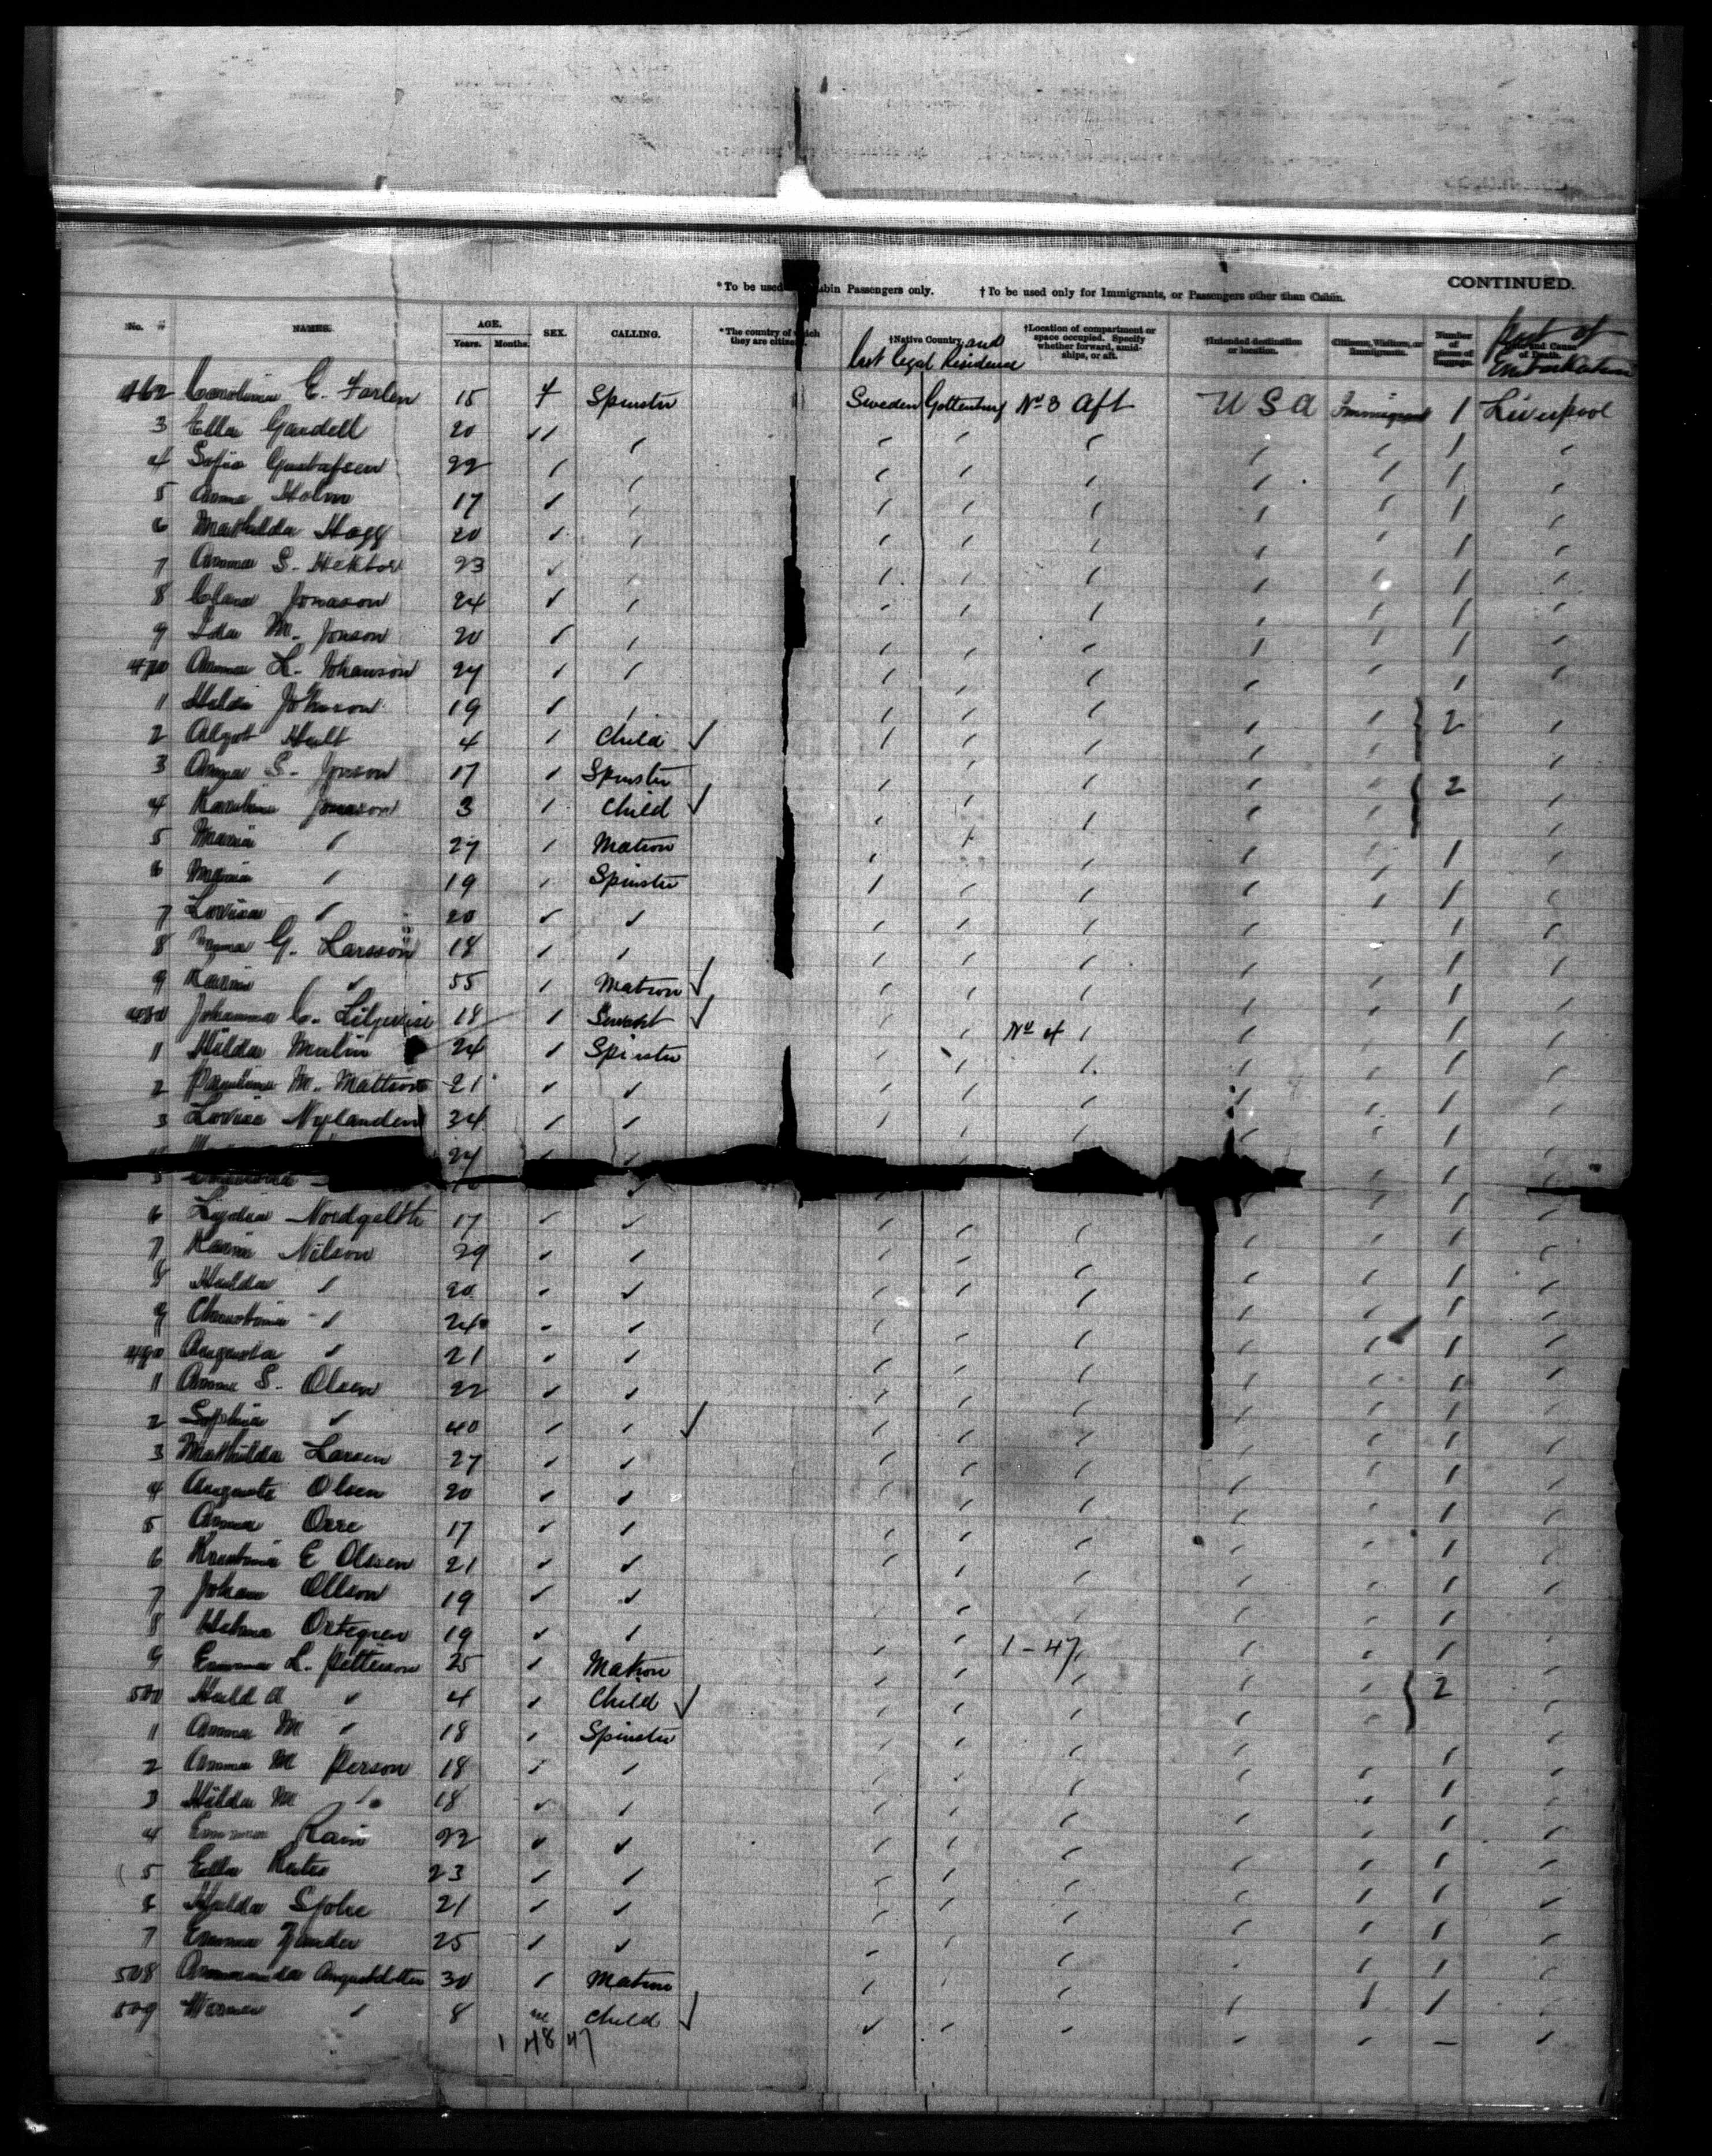 CONTINUED.
*To be used Cabin Passengers only. †To be used only for Immigrants, or Passengers other than Cabin.
No. NAMES. AGE. Years. Months. SEX. CALLING. *The country of which they are citizens. †Native Country and last legal Residence †Location of compartment or space occupied. Specify whether forward, amidships, or aft. †Intended destination or location. Citizens, Visitors, or Immigrants. Number of pieces of baggage. Port of Embarkation
462 E. 15 F Spinster Sweden Gottenburg No 3 Aft U S A Immigrant 1 Liverpool
3 Ella Gardell 20 " 1
4 Sofia Gustafsen 22 1
5 Anna Holm 17 1
6 Mathilda Hagg 20 1
7 Anna S. Hektor 23 1
8 Clara Jonason 24 1
9 Ida M. Jonson 20 1
470 Anna L. Johanson 24 1
1 Hilda Johnson 19
2 Algot Hult 4 Child ✓ 2
3 Anna S. Jonson 17 Spinster
4 Jonason 3 Child ✓ 2
5 Maria " 27 Matron 1
6 Maria " 19 Spinster 1
7 Lovisa " 20 1
8 Anna G. Larsson 18 1
9 Karin " 55 Matron ✓ 1
480 Johanna C. 18 Servant ✓ No 4 1
1 Hilda Malin 24 Spinster 1
2 Paulina M. Mattson 21 1
3 Lovisa Nylander 34 1
24 1
5 1
6 Lydia Nordgelth 17 1
7 Karin Nilson 29 1
8 Hulda " 20 1
9 Christina " 24 1
490 Augusta " 21 1
1 Anna S. Olsen 22 1
2 Sophia " 40 ✓ 1
3 Mathilda Larsen 27 1
4 Augusta Olsen 20 1
5 Anna Orre 17 1
6 E Olsen 21 1
7 Johan Ollson 19 1
8 Ortegren 19 1-47 1
9 Emma L. Petterson 25 Matron
500 Huld a " 4 Child ✓ 2
1 Anna M " 18 Spinster
2 Anna M Person 18 1
3 Hilda M " 18 1
4 Emma 22 1
5 Ella 23 1
6 Hulda 21 1
7 Emma 25 1
508 Augustdotter 30 Matron 1
509 " 8 m Child ✓ —
1 48 47